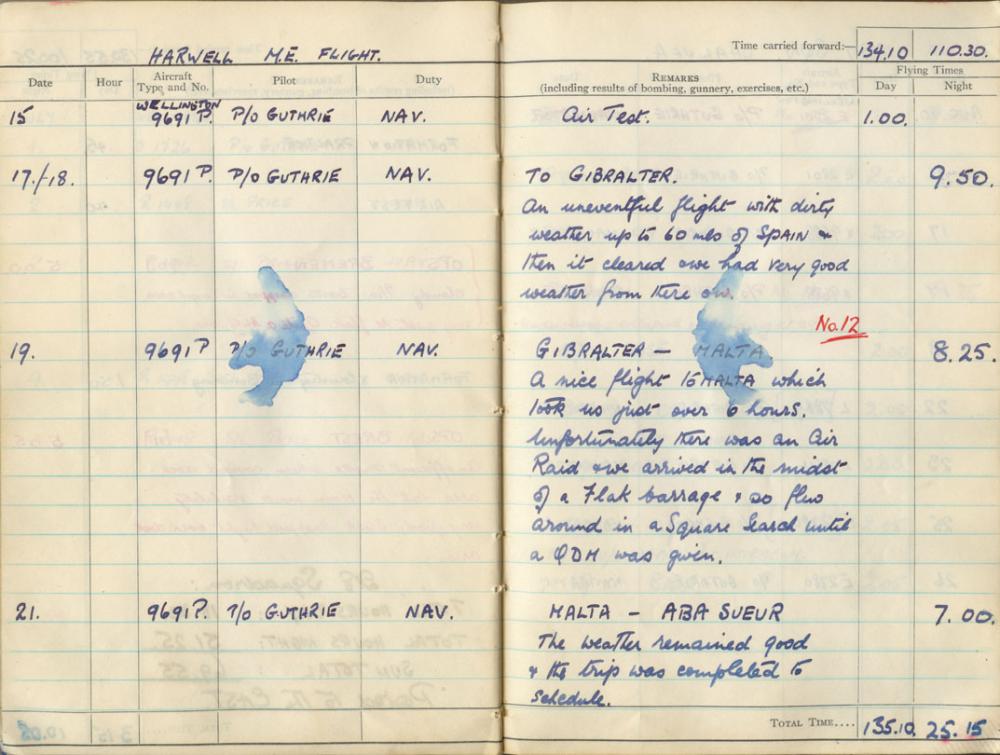 HARWELL M.E. FLIGHT.
Date Hour Aircraft Type and No. Pilot Duty
WELLINGTON
15 9691 P. P/O GUTHRIE NAV.
17./18. 9691 P. P/O GUTHRIE NAV.
19. 9691 P P/O GUTHRIE NAV.
21. 9691 P. P/O GUTHRIE NAV.
Time carried forward:— 134.10 110.30.
REMARKS
(including results of bombing, gunnery, exercises, etc.)
Flying Times
Day Night
Air Test. 1.00.
TO GIBRALTER. 9.50.
An uneventful flight with dirty
weather up to 60 mls of SPAIN &
then it cleared & we had very good
weather from there on.
No.12
GIBRALTER — MALTA 8.25.
A nice flight to MALTA which
took us just over 6 hours.
Unfortunately there was an Air
Raid & we arrived in the midst
of a Flak barrage & so flew
around in a Square Search until
a QDM was given.
MALTA - ABA SUEUR 7.00.
The weather remained good
& the trip was completed to
Schedule.
TOTAL TIME.... 135.10. 25.15